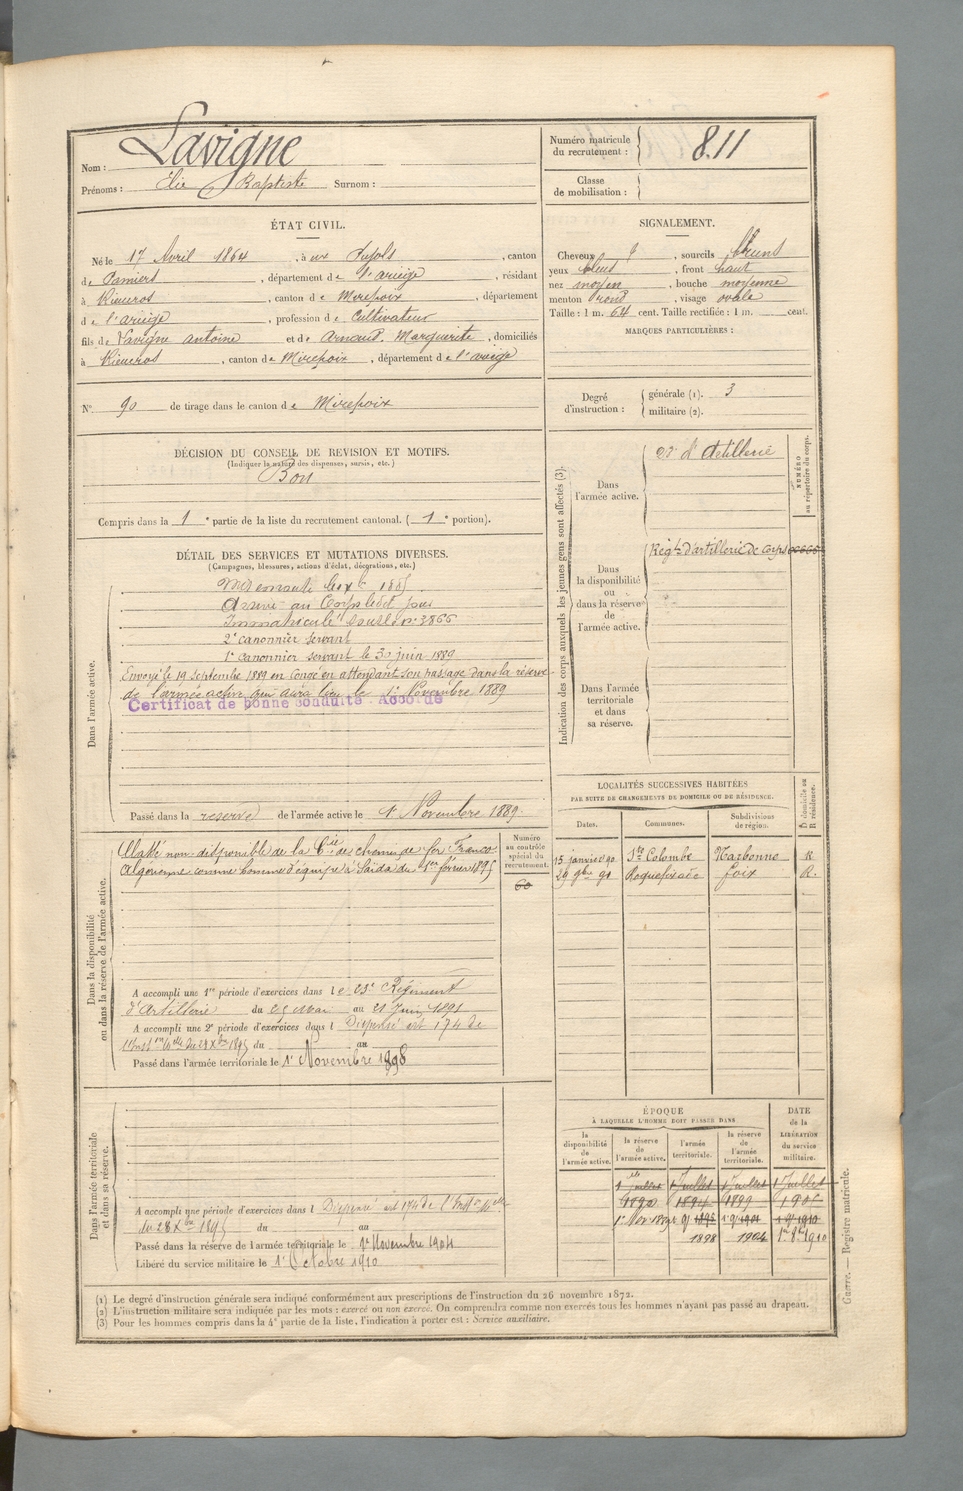 Nom : Lavigne
Prénoms : Élie Baptiste Surnom :
Numéro matricule du recrutement : 811
Classe de mobilisation :
ÉTAT CIVIL.
Né le 17 Avril 1864, à ux Pujols, canton
de Pamiers, département de l'ariège, résidant
à Rieucros, canton de Mirepoix, département
d e l'ariège, profession de Cultivateur
fils de Lavigne antoine et de Arnaud. Marguerite, domiciliés
à Rieucros, canton de Mirepoix, département de l'ariège
N° 90 de tirage dans le canton de Mirepoix
SIGNALEMENT.
Cheveux, sourcils bruns
yeux bleus, front haut
nez moyen, bouche moyenne
menton rond, visage ovale
Taille : 1 m. 64 cent. Taille rectifiée : 1 m. cent.
MARQUES PARTICULIÈRES :
Degré d'instruction :
générale (1). 3
militaire (2).
DÉCISION DU CONSEIL DE REVISION ET MOTIFS.
(Indiquer la nature des dispenses, sursis, etc.)
Bon
Compris dans la 1e partie de la liste du recrutement cantonal. (1e portion).
DÉTAIL DES SERVICES ET MUTATIONS DIVERSES.
(Campagnes, blessures, actions d'éclat, décorations, etc.)
Dans l'armée active.
Mis en route le 1885
Arrivé au Corps le dit jour
Immatriculé sous le n° 3866
2e canonnier servant
1e canonnier servant le 30 juin 1889
Envoyé le 19 septembre 1889 en congé en attendant son passage dans la réserve
de l'armée active qui aura lieu le 1e Novembre 1889
Certificat de bonne conduite : Accordé
Passé dans la reserve de l'armée active le 1e Novembre 1889.
Indication des corps auxquels les jeunes gens sont affectés (3).
NUMÉRO au répertoire du corps.
Dans l'armée active.
23e d'Artillerie
Dans la disponibilité ou dans la réserve de l'armée active.
Régt d'artillerie de Corps
Dans l'armée territoriale et dans sa réserve.
LOCALITÉS SUCCESSIVES HABITÉES
PAR SUITE DE CHANGEMENTS DE DOMICILE OU DE RÉSIDENCE.
Dates. Communes. Subdivisions de région. D domicile ou R résidence.
15 janvier 90 Ste Colombe Narbonne R
29 9bre 91 Roquefixade foix R.
Dans la disponibilité ou dans la réserve de l'armée active.
Numéro au contrôle spécial du recrutement.
60
Classé non disponible de la Cie de chemin de fer Franco
Algérienne comme homme d'équipe à Saïda du 1er février 1895
A accompli une 1re période d'exercices dans l e 23e Régiment
d'Artillerie du 25 mai au 21 Juin 1891
A accompli une 2e période d'exercices dans l Dispensé art 174 de
l'Inst on Melle du 28 Xbre 1895 du au
Passé dans l'armée territoriale le 1e Novembre 1898
Dans l'armée territoriale et dans sa réserve.
A accompli une période d'exercices dans l Dispensé art 174 de l'Inst on Melle
du 28 Xbre 1895 du au
Passé dans la réserve de l'armée territoriale le 1e Novembre 1904
Libéré du service militaire le 1e Octobre 1910
ÉPOQUE
À LAQUELLE L'HOMME DOIT PASSER DANS
DATE de la LIBÉRATION du service militaire.
la disponibilité de l'armée active. la réserve de l'armée active. l'armée territoriale. la réserve de l'armée territoriale.
1 Juillet 1 Juillet 1 Juillet 1 Juillet
1890 1894 1899 1905
1e Nov 1889 1895 1901 1910
1898 1904 1er 8bre 1910
(1) Le degré d'instruction générale sera indiqué conformément aux prescriptions de l'instruction du 26 novembre 1872.
(2) L'instruction militaire sera indiquée par les mots : exercé ou non exercé. On comprendra comme non exercés tous les hommes n'ayant pas passé au drapeau.
(3) Pour les hommes compris dans la 4e partie de la liste, l'indication à porter est : Service auxiliaire.
Guerre. — Registre matricule.